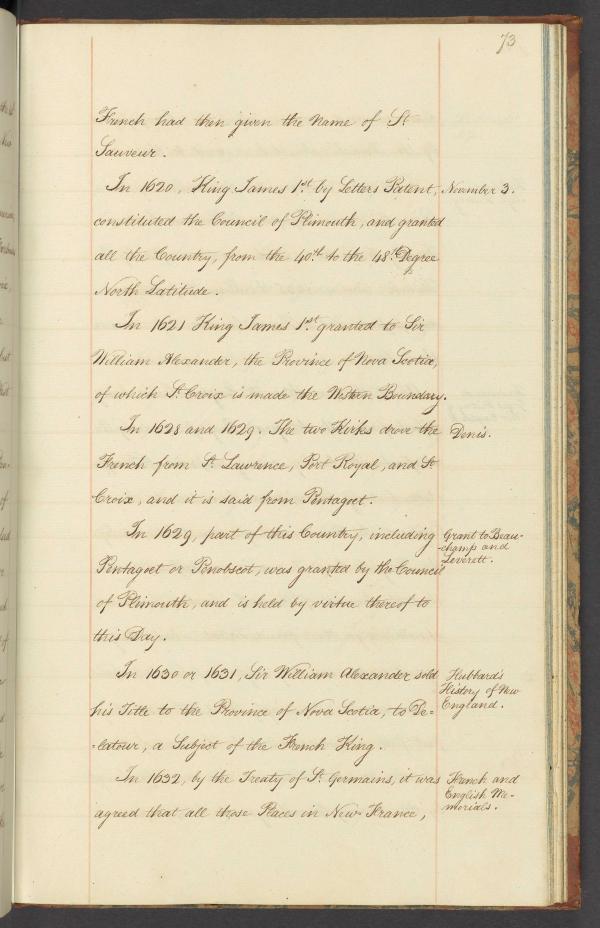 73
French had then given the Name of St.
Sauveur.
In 1620, King James 1st. by Letters Patent, November 3.
constituted the Council of Plimouth, and granted
all the Country, from the 40th. to the 48th. Degree
North Latitude.
In 1621 King James 1st. granted to Sir
William Alexander, the Province of Nova Scotia,
of which St. Croix is made the Western Boundary.
In 1628 and 1629. The two Kirks drove the Denis.
French from St. Lawrence, Port Royal, and St.
Croix, and it is said from Pentagoet.
In 1629, part of this Country, including Grant to Beau-
-champ and
Pentagoet or Penobscot, was granted by the Council Leverett.
of Plimouth, and is held by virtue thereof to
this Day.
In 1630 or 1631, Sir William Alexander sold Hubbard's
History of New
his Title to the Province of Nova Scotia, to De= England.
=latour, a Subject of the French King.
In 1632, by the Treaty of St. Germains, it was French and
English Me-
agreed that all those Places in New-France, morials.